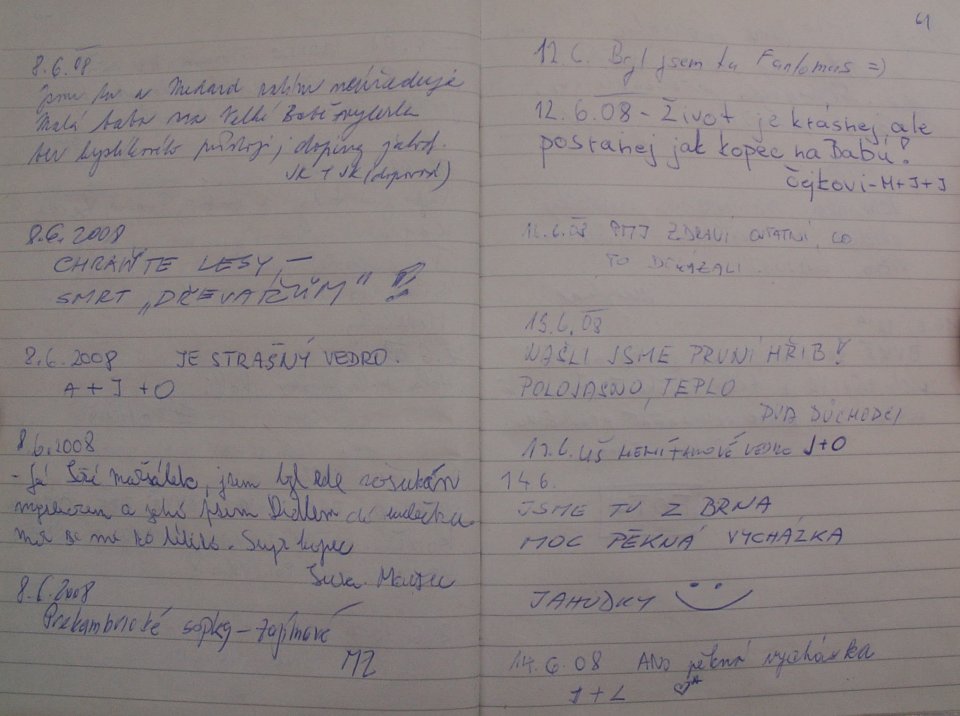 8.6.08
Jsme tu a Medard zatím neúřaduje
Malá baba na Velké Babě
bez kyslíkového přístroje, doping jahod.
JK + JK (doprovod)
8.6.2008
CHRAŇTE LESY,—
SMRT „DŘEVAŘŮM" !
8.6.2008 JE STRAŠNÝ VEDRO.
A + J + O
8.6.2008
- Já Jiří Mašálek, jsem byl zde
a jeho psem do
se mě to líbilo. Supr kopec
8.6.2008
Prekambrické sopky – zajímavé
MZ
61
12.6. Byl jsem tu Fantomas =)
12.6.08 - Život je krásnej, ale
posranej jak kopec na Babu!
Čejkovi - M + J + J
12.6.08 PMJ ZDRAVÍ OSTATNÍ, CO
TO DOKÁZALI.
13.6.08
NAŠLI JSME PRVNÍ HŘIB!
POLOJASNO, TEPLO
DVA DŮCHODCI
13.6. UŠ NENÍ TAKOVÉ VEDRO J+O
14.6.
JSME TU Z BRNA
MOC PĚKNÁ VYCHÁZKA
JAHŮDKY
14.6.08 ANO pěkná vycházka
J + L